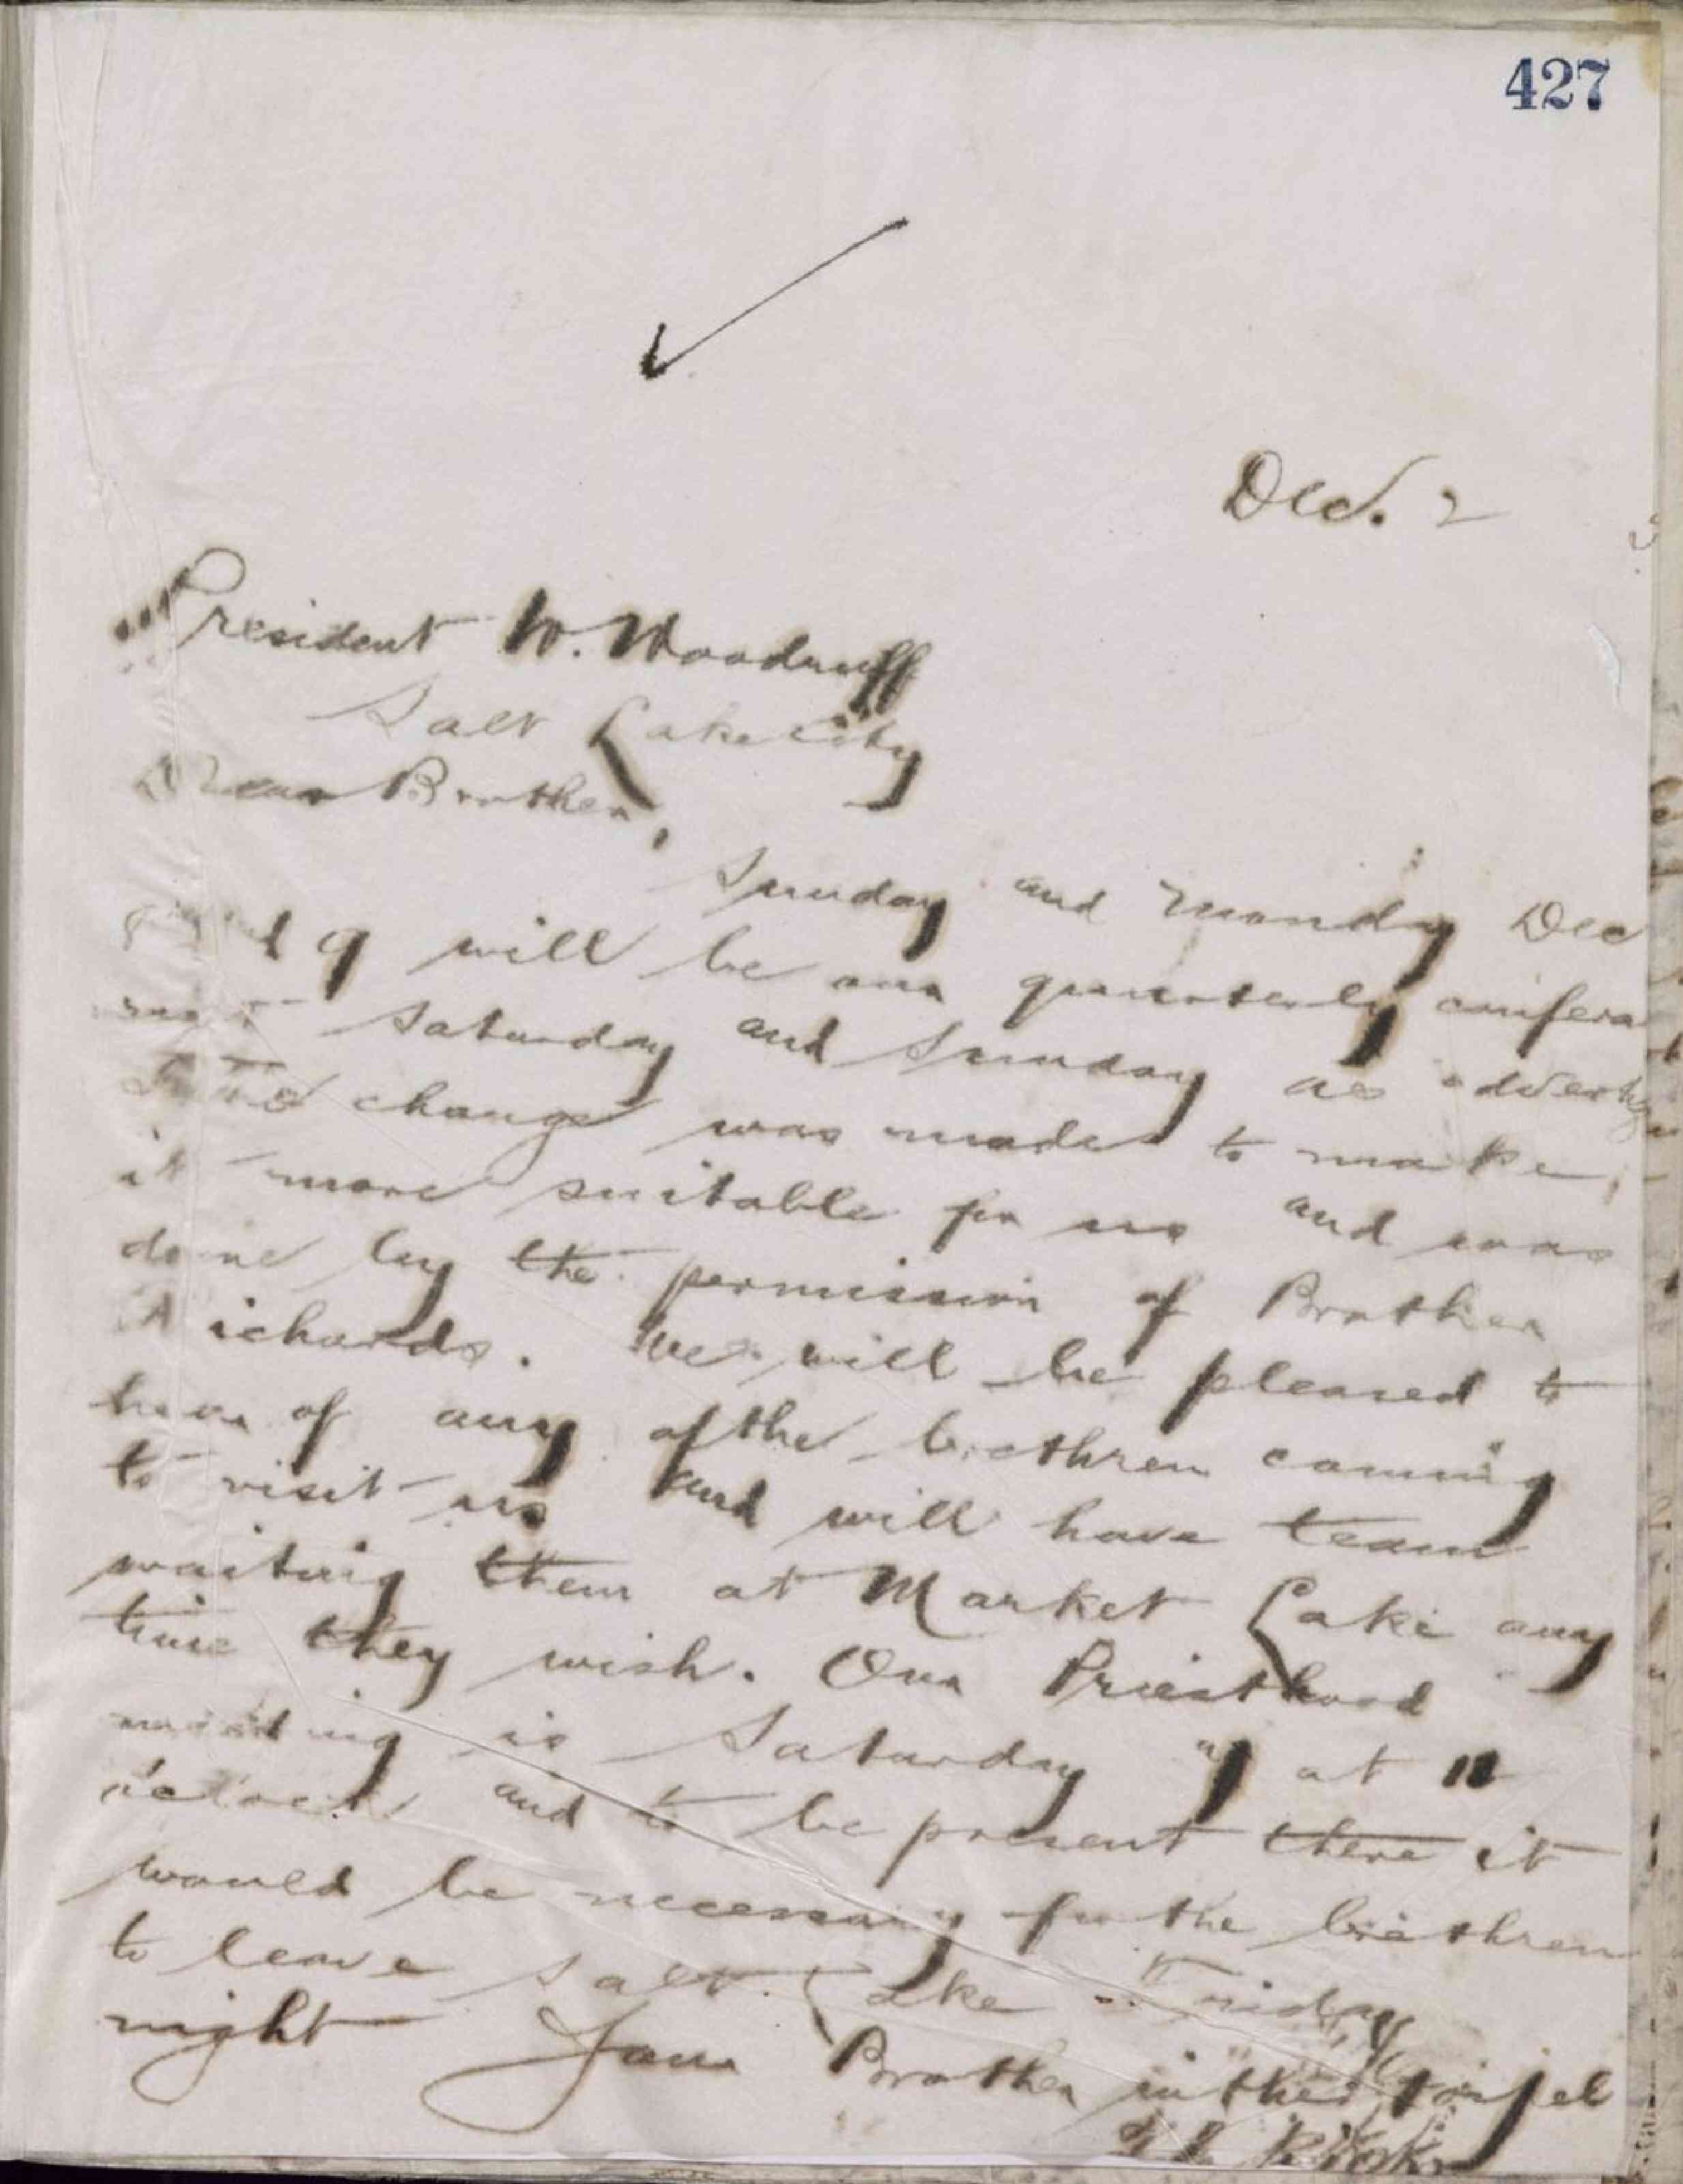 427
Dec. 2
President W. Woodruff
Salt Lake City
Dear Brother,
Sunday and Monday Dec
9 will be our quarterly confera
Saturday and Sunday as advert
change was made to make
it more suitable for us and was
done by the permission of Brother
Richards. We will be pleased to
hear of any of the brethren coming
to visit us and will have team
waiting them at Market Lake any
time they wish. Our Priesthood
meeting is Saturday at
oclock and to be present there it
would be necessary for the brethren
to leave Salt Lke Friday
night Your Brother in the Gospel